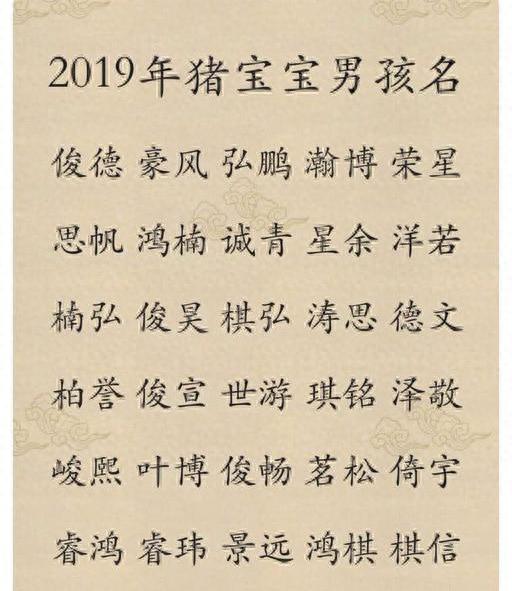 2019年猪宝宝男孩名
俊德 豪风 弘鹏 瀚博 荣星
思帆 鸿楠 诚青 星余 洋若
楠弘 俊昊 棋弘 涛思 德文
柏誉 俊宣 世游 琪铭 泽敬
峻熙 叶博 俊畅 茗松 倚宇
睿鸿 睿玮 景远 鸿棋 棋信